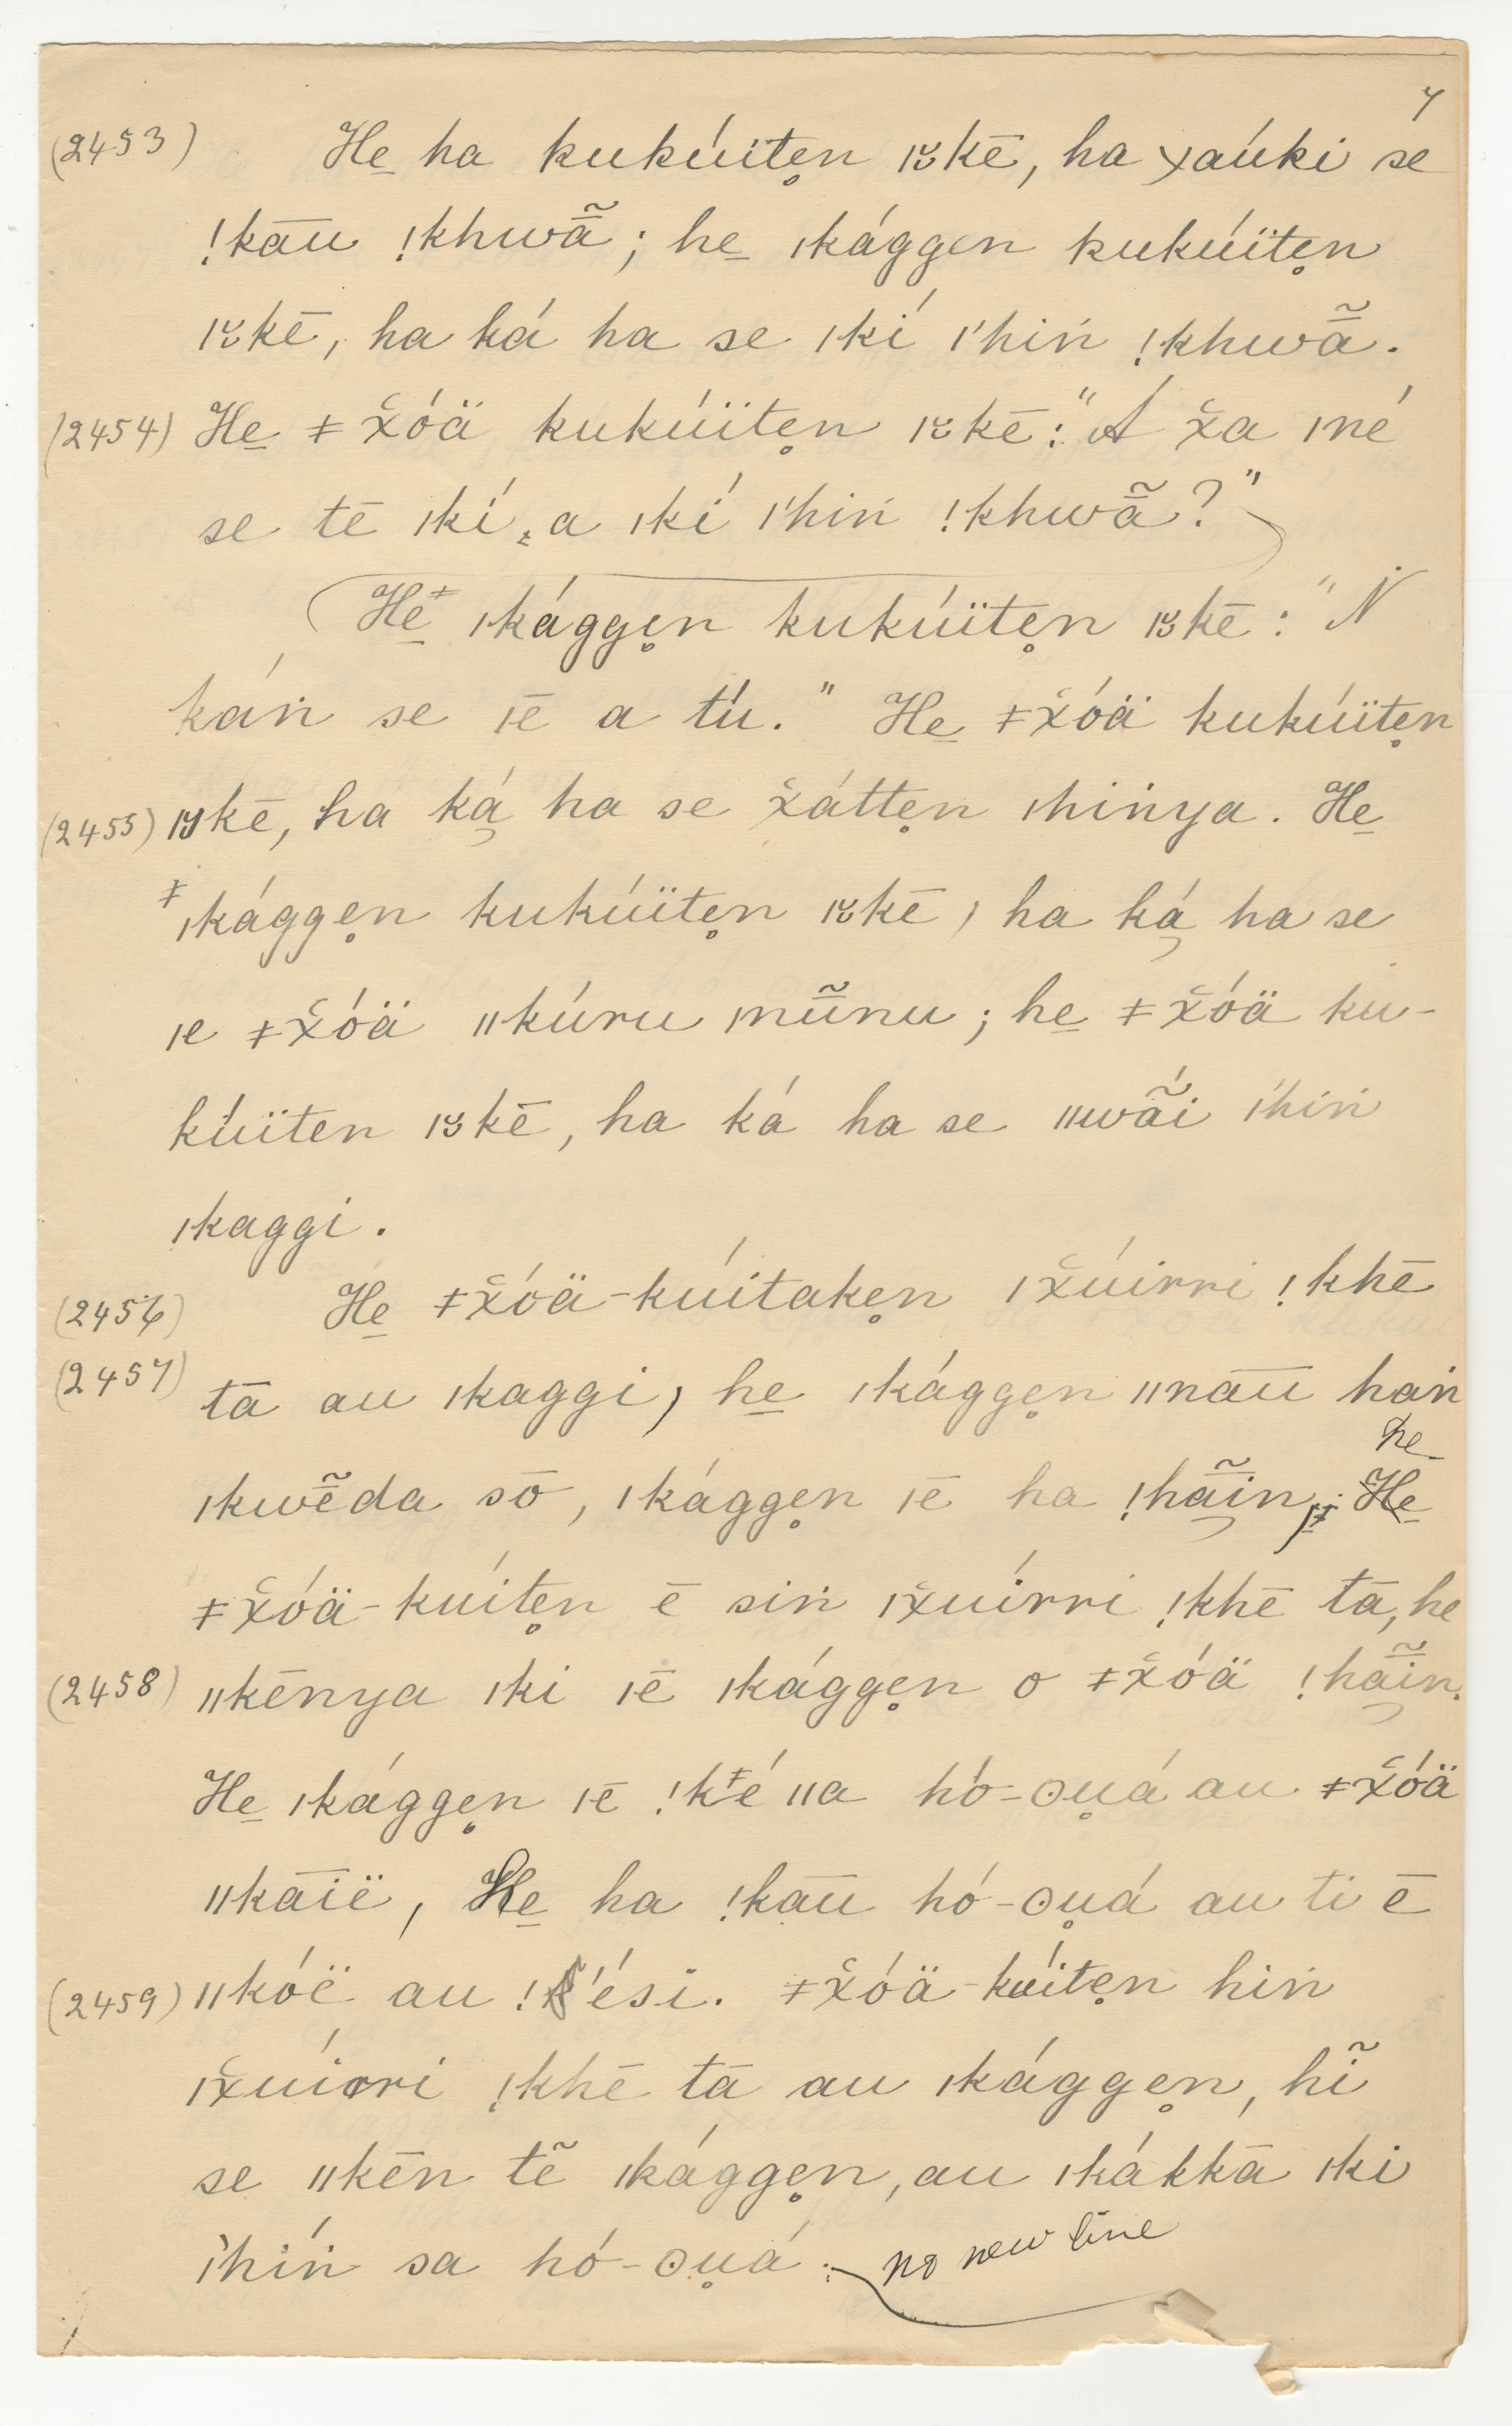 7
(2453) He̲ ha kukúïten̥ ıꞯkē, ha χaúki se
!kāu !khwā̃; he̲ ıkággen kukúïten̥
ıꞯkē, ha ká ha se ıkí ı'hiṅ !khwā̃.
(2454) He̲ ǂχ̌óä kukúïten̥ ıꞯkē: "Á χ̌a ıné
se tē ıkí, a ıkí ı'hiṅ !khwā̃?"
Hé̲ǂ ıkággen̥ kukúïten̥ ıꞯkē: "Ṅ
káṅ se ıē a tú." He̲ ǂχ̌óä kukúïten̥
(2455) ıꞯkē, ha ká̡ ha se χ̌átten̥ ıhiṅya. He̲
ǂ ıkággen̥ kukúïten̥ ıꞯkē, ha ká̡ ha se
ıe ǂχ̌óä ııkúru ınū̃nu; he̲ ǂχ̌óä ku-
kúïten ıꞯkē, ha ká ha se ııwā̃́i ı'hiṅ
ıkaggi.
(2456) He̲ ǂχ̌óä-kúitaken̥ ıχ̌úirri !khē
(2457) tā au ıkaggi, he̲ ıkággen̥ ıınāu haṅ
he
ıkwē̃da sō, ıkággen̥ ıē ha !hā̃i̡n; He̲
ǂχ̌óä-kúiten̥ ē siṅ ıχ̌uírri !khē tā, he
(2458) ııkēnya ıki ıē ıkággen̥ o ǂχ̌óä !hā̃i̡n.
He̲ ıkággen̥ ıē !kǂé ııa hó-ʘu̥á au ǂχ̌óä
ııkāïë, He̲ ha !kāu hó-ʘu̥á au ti ē
(2459) ııkóë au !k'ési. ǂχ̌óä-kúiten̥ hiṅ
ıχ̌uírri !khē tā au ıkággen̥, hĩ
se ııkēn tẽ ıkággen̥, au ıkákkā ıki
ı'híṅ sa hó-ʘu̥á.; no new line